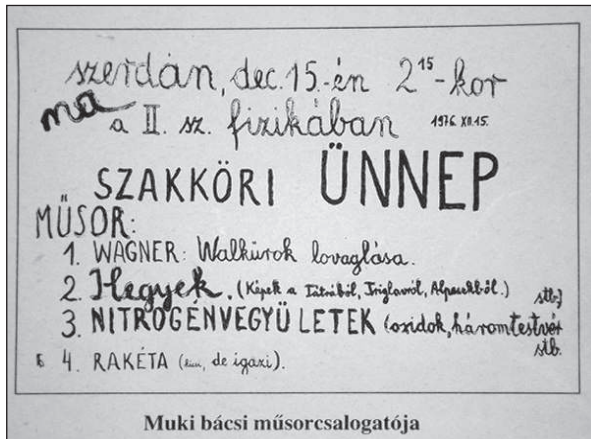 szerdán, dec. 15.-én 2 15-kor
ma a II. sz. fizikában 1976. XII. 15.
SZAKKÖRI ÜNNEP
MŰSOR:
1. WAGNER: Walkürok lovaglása.
2. Hegyek. (Képek a Tátrából, Triglavról, Alpesekből.) stb.)
3. NITROGÉNVEGYÜLETEK (oxidok, háromtestvér stb.
4. RAKÉTA (kicsi, de igazi).
Muki bácsi műsorcsalogatója